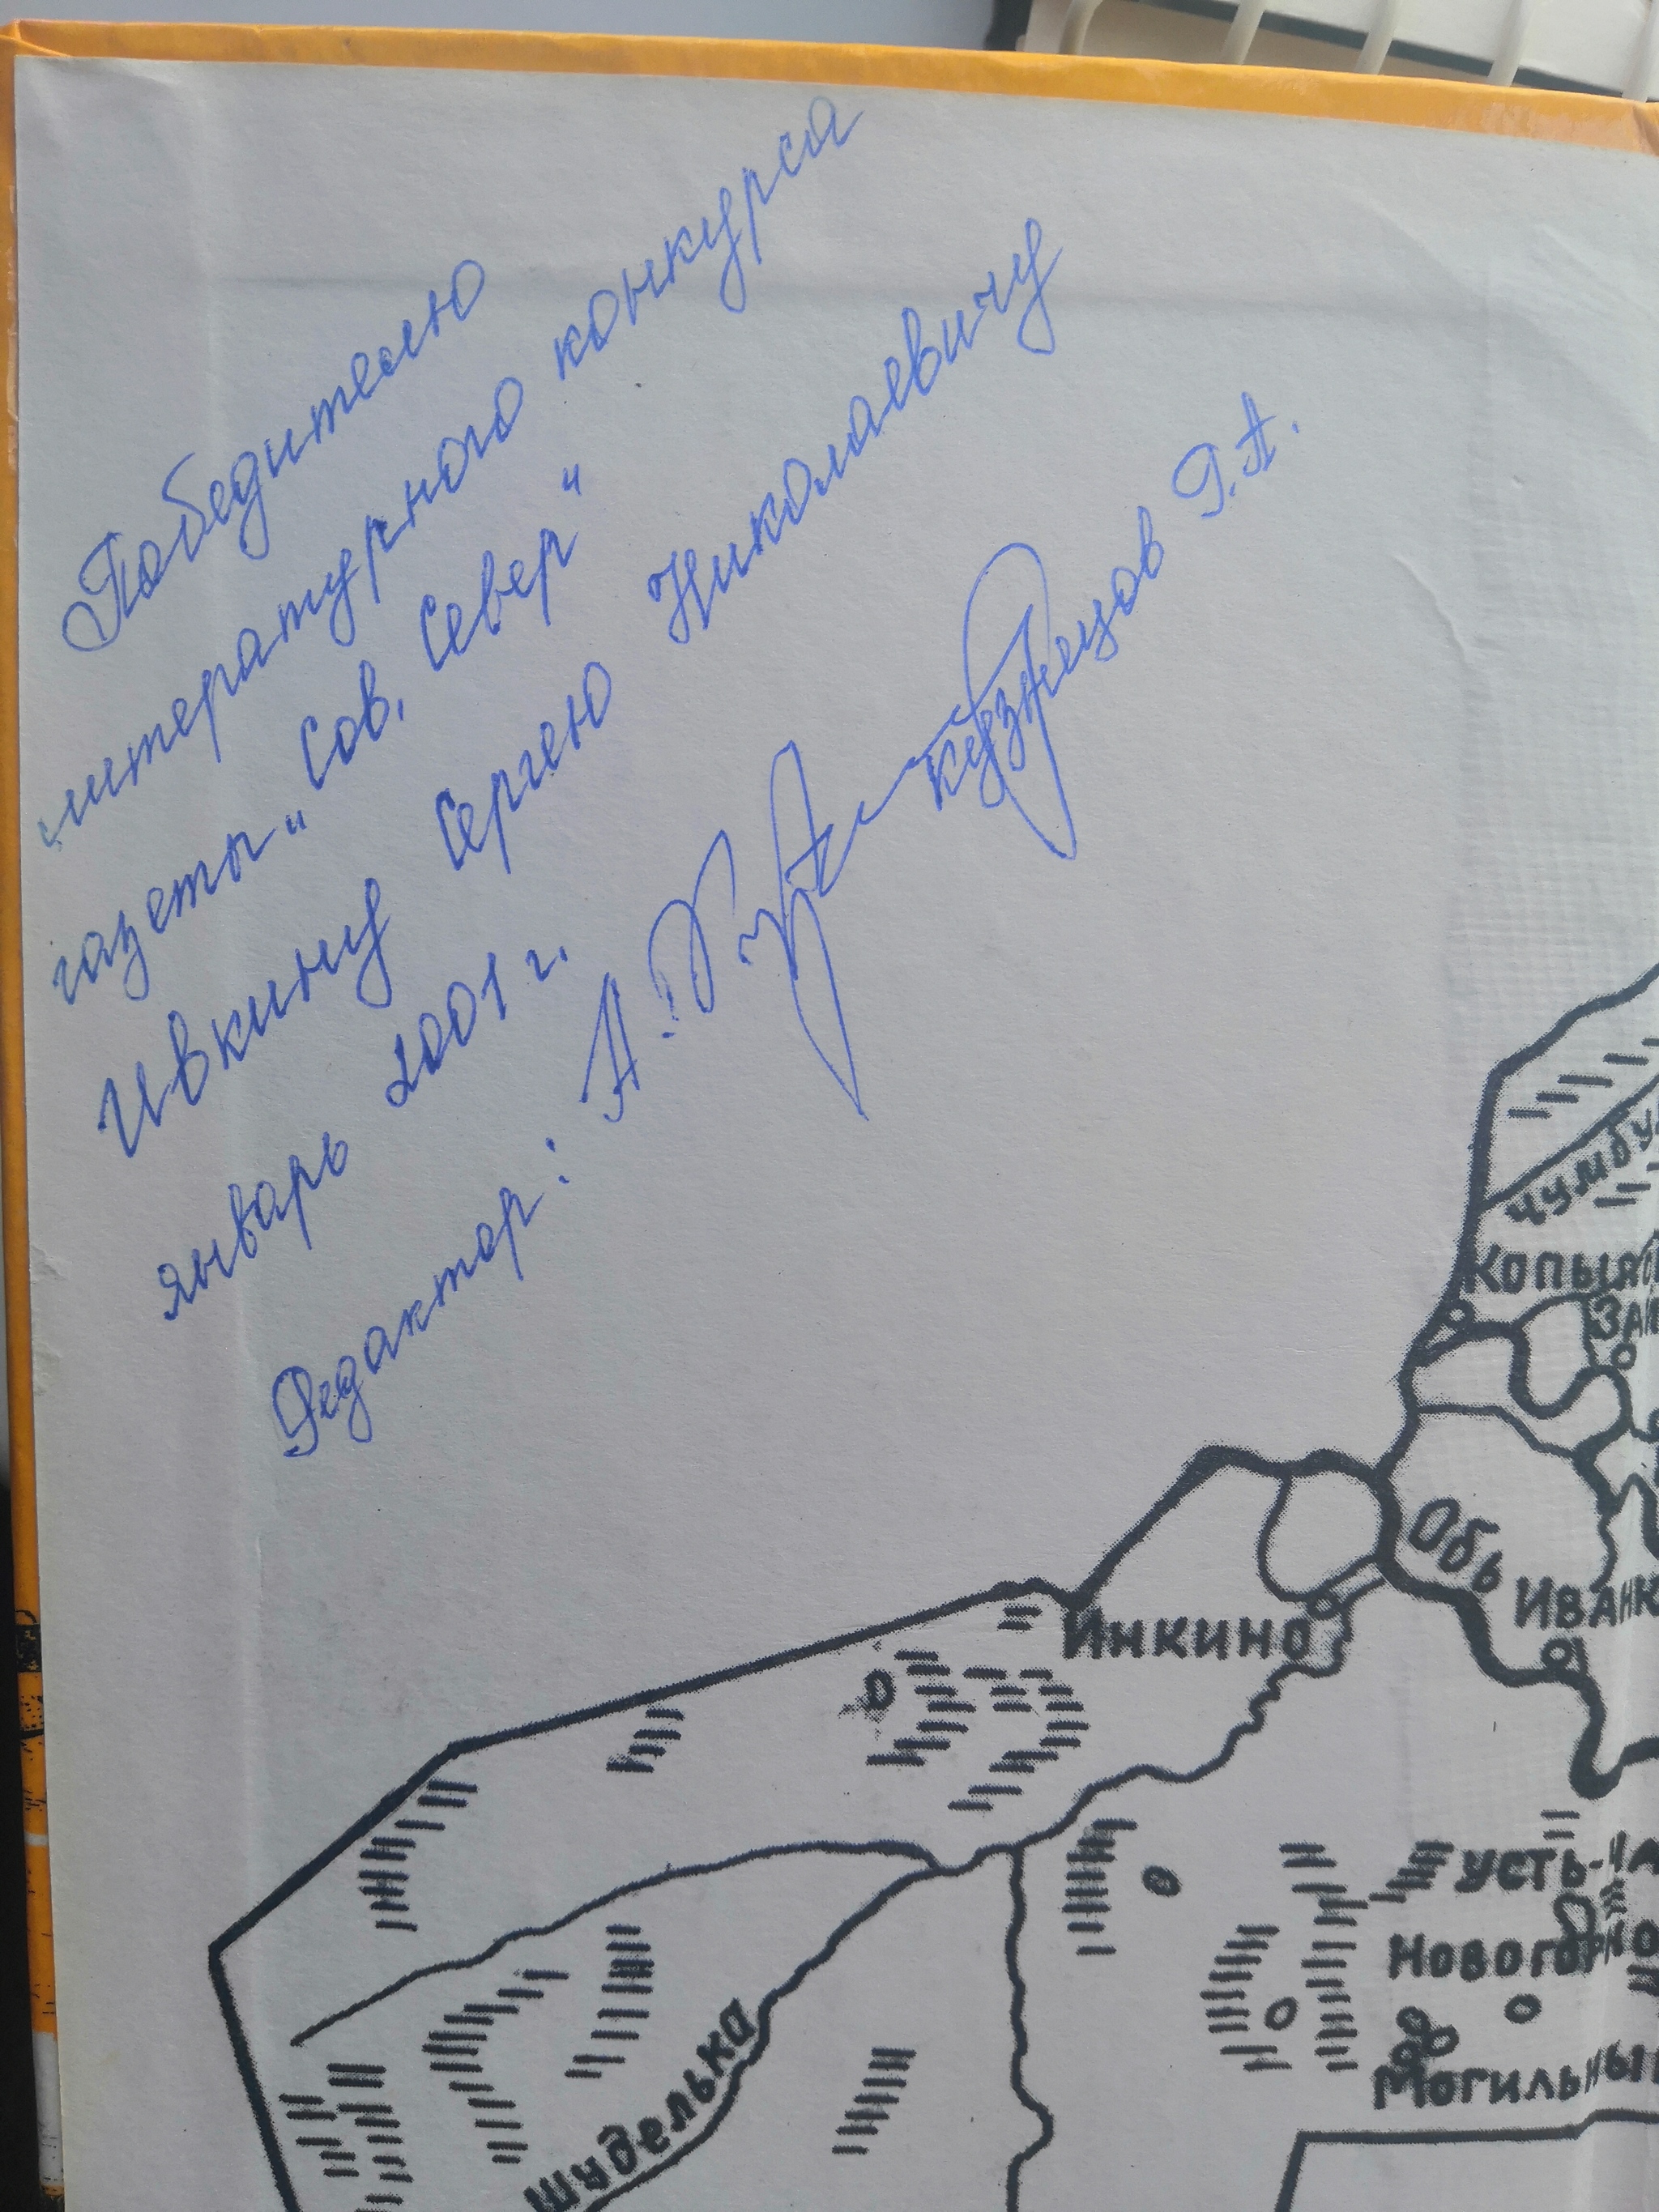 Победителю
литературного конкурса
газеты "Сов. Север"
Ивкину Сергею Николаевичу
январь 2001 г.
Редактор:
Кузнецов
Чумбу
Копыл
Обь
Инкино
Иванк
Усть-ча
Новогорно
Могильны
Шуделька